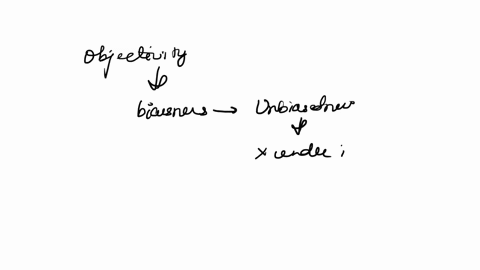 Objectivity
biasness → Unbiasedness
x under i